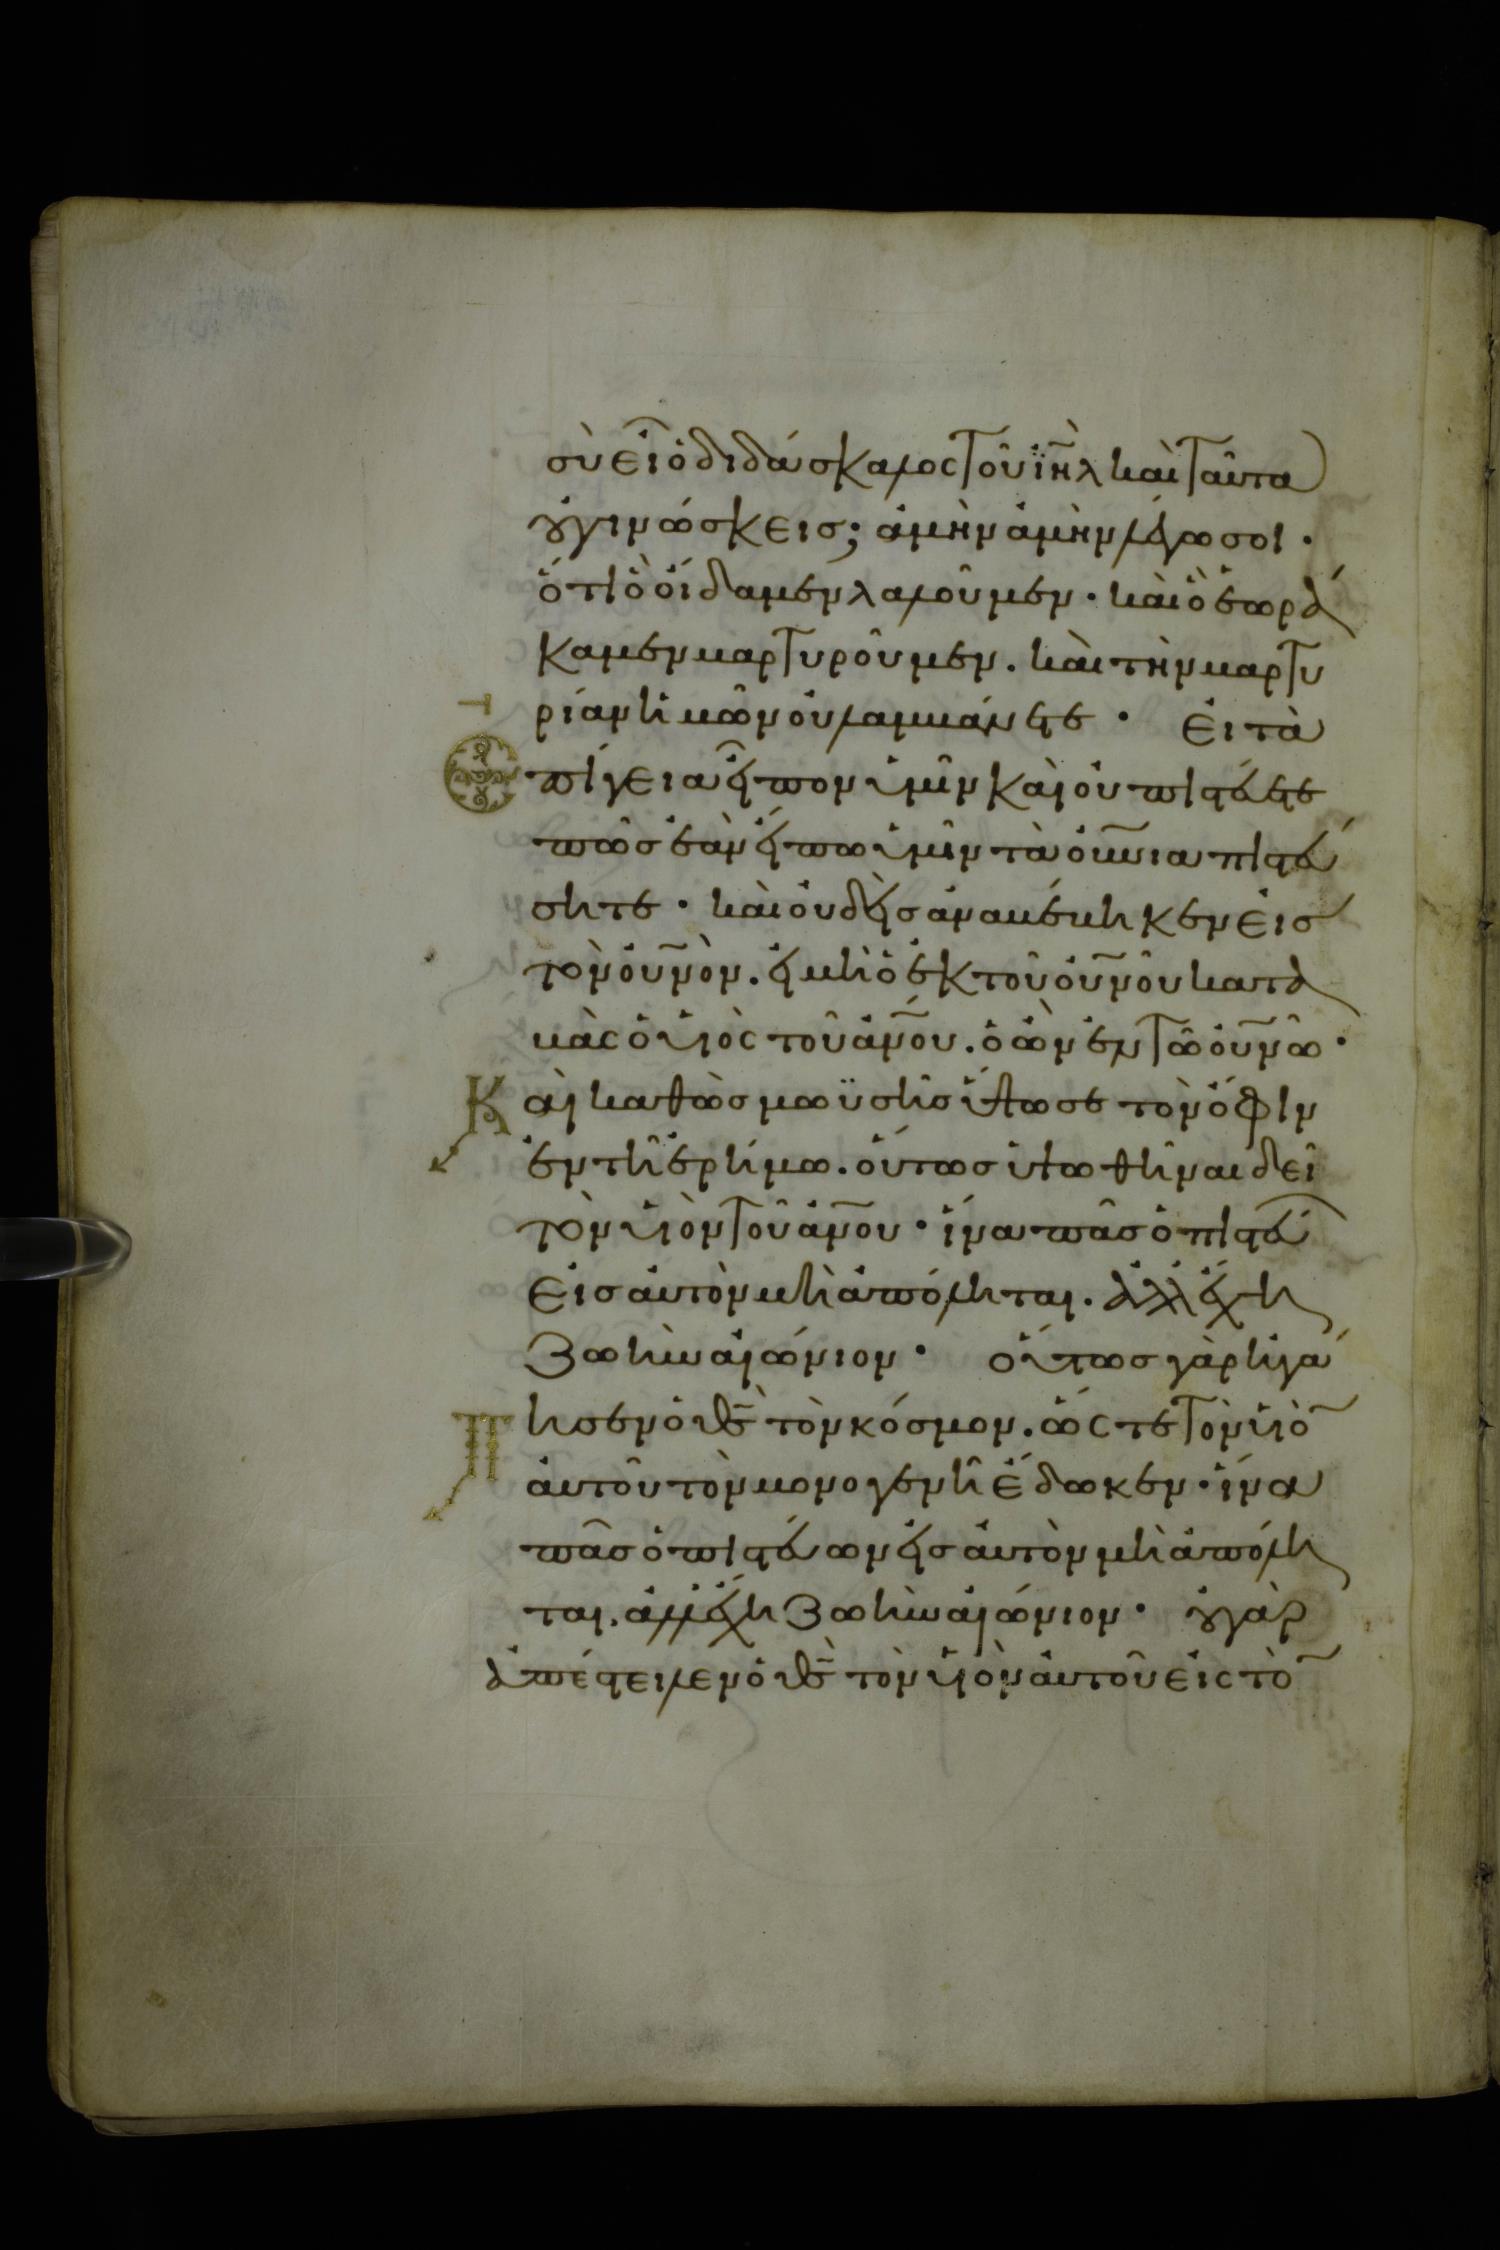 σὺ εἶ ὁ διδάσκαλος τοῦ ἰη̅λ καὶ ταῦτα
οὐ γινώσκεις; ἀμὴν ἀμὴν λέγω σοι·
ὅτι ὃ οἴδαμεν λαλοῦμεν· καὶ ὃ ἑωρά
καμεν μαρτυροῦμεν. καὶ τὴν μαρτυ
ρίαν ἡμῶν οὐ λαμβάνετε · εἰ τὰ
Ἐπίγεια εἶπον ὑμῖν καὶ οὐ πιστεύετε
πῶς ἐὰν εἴπω ὑμῖν τὰ οὐ̅νια πιστεύ
σητε · καὶ οὐδεὶς ἀναβέβηκεν εἰς
τὸν οὐ̅νὸν. εἰ μὴ ὁ ἐκ τοῦ οὐ̅νοῦ κατα
βὰς ὁ υἱὸς τοῦ ἀ̅νου. ὁ ὢν ἐν τῶ οὐ̅νῶ ·
Καὶ καθὼς μωϋσῆς ὕψωσε τὸν ὄφιν
ἐν τῆ ἐρήμω. οὕτως ὑψωθῆναι δεῖ
τὸν υἱὸν τοῦ ἀ̅νου · ἵνα πᾶς ὁ πιστεύων
εἰς αὐτὸν μὴ ἀπόληται. ἀλλ' ἔχη
ζωὴν αἰώνιον · οὕτως γὰρ ἠγά
Πησεν ὁ θ̅ς τὸν κόσμον. ὥστε τὸν υἱὸ̅
αὐτοῦ τὸν μονογενῆ ἔδωκεν · ἵνα
πᾶς ὁ πιστεύων εἰς αὐτὸν μὴ ἀπόλη
ται. ἀλλ' ἔχη ζωὴν αἰώνιον · οὐ γὰρ
ἀπέστειλεν ὁ θ̅ς τὸν υἱὸν αὐτοῦ εἰς τὸ̅